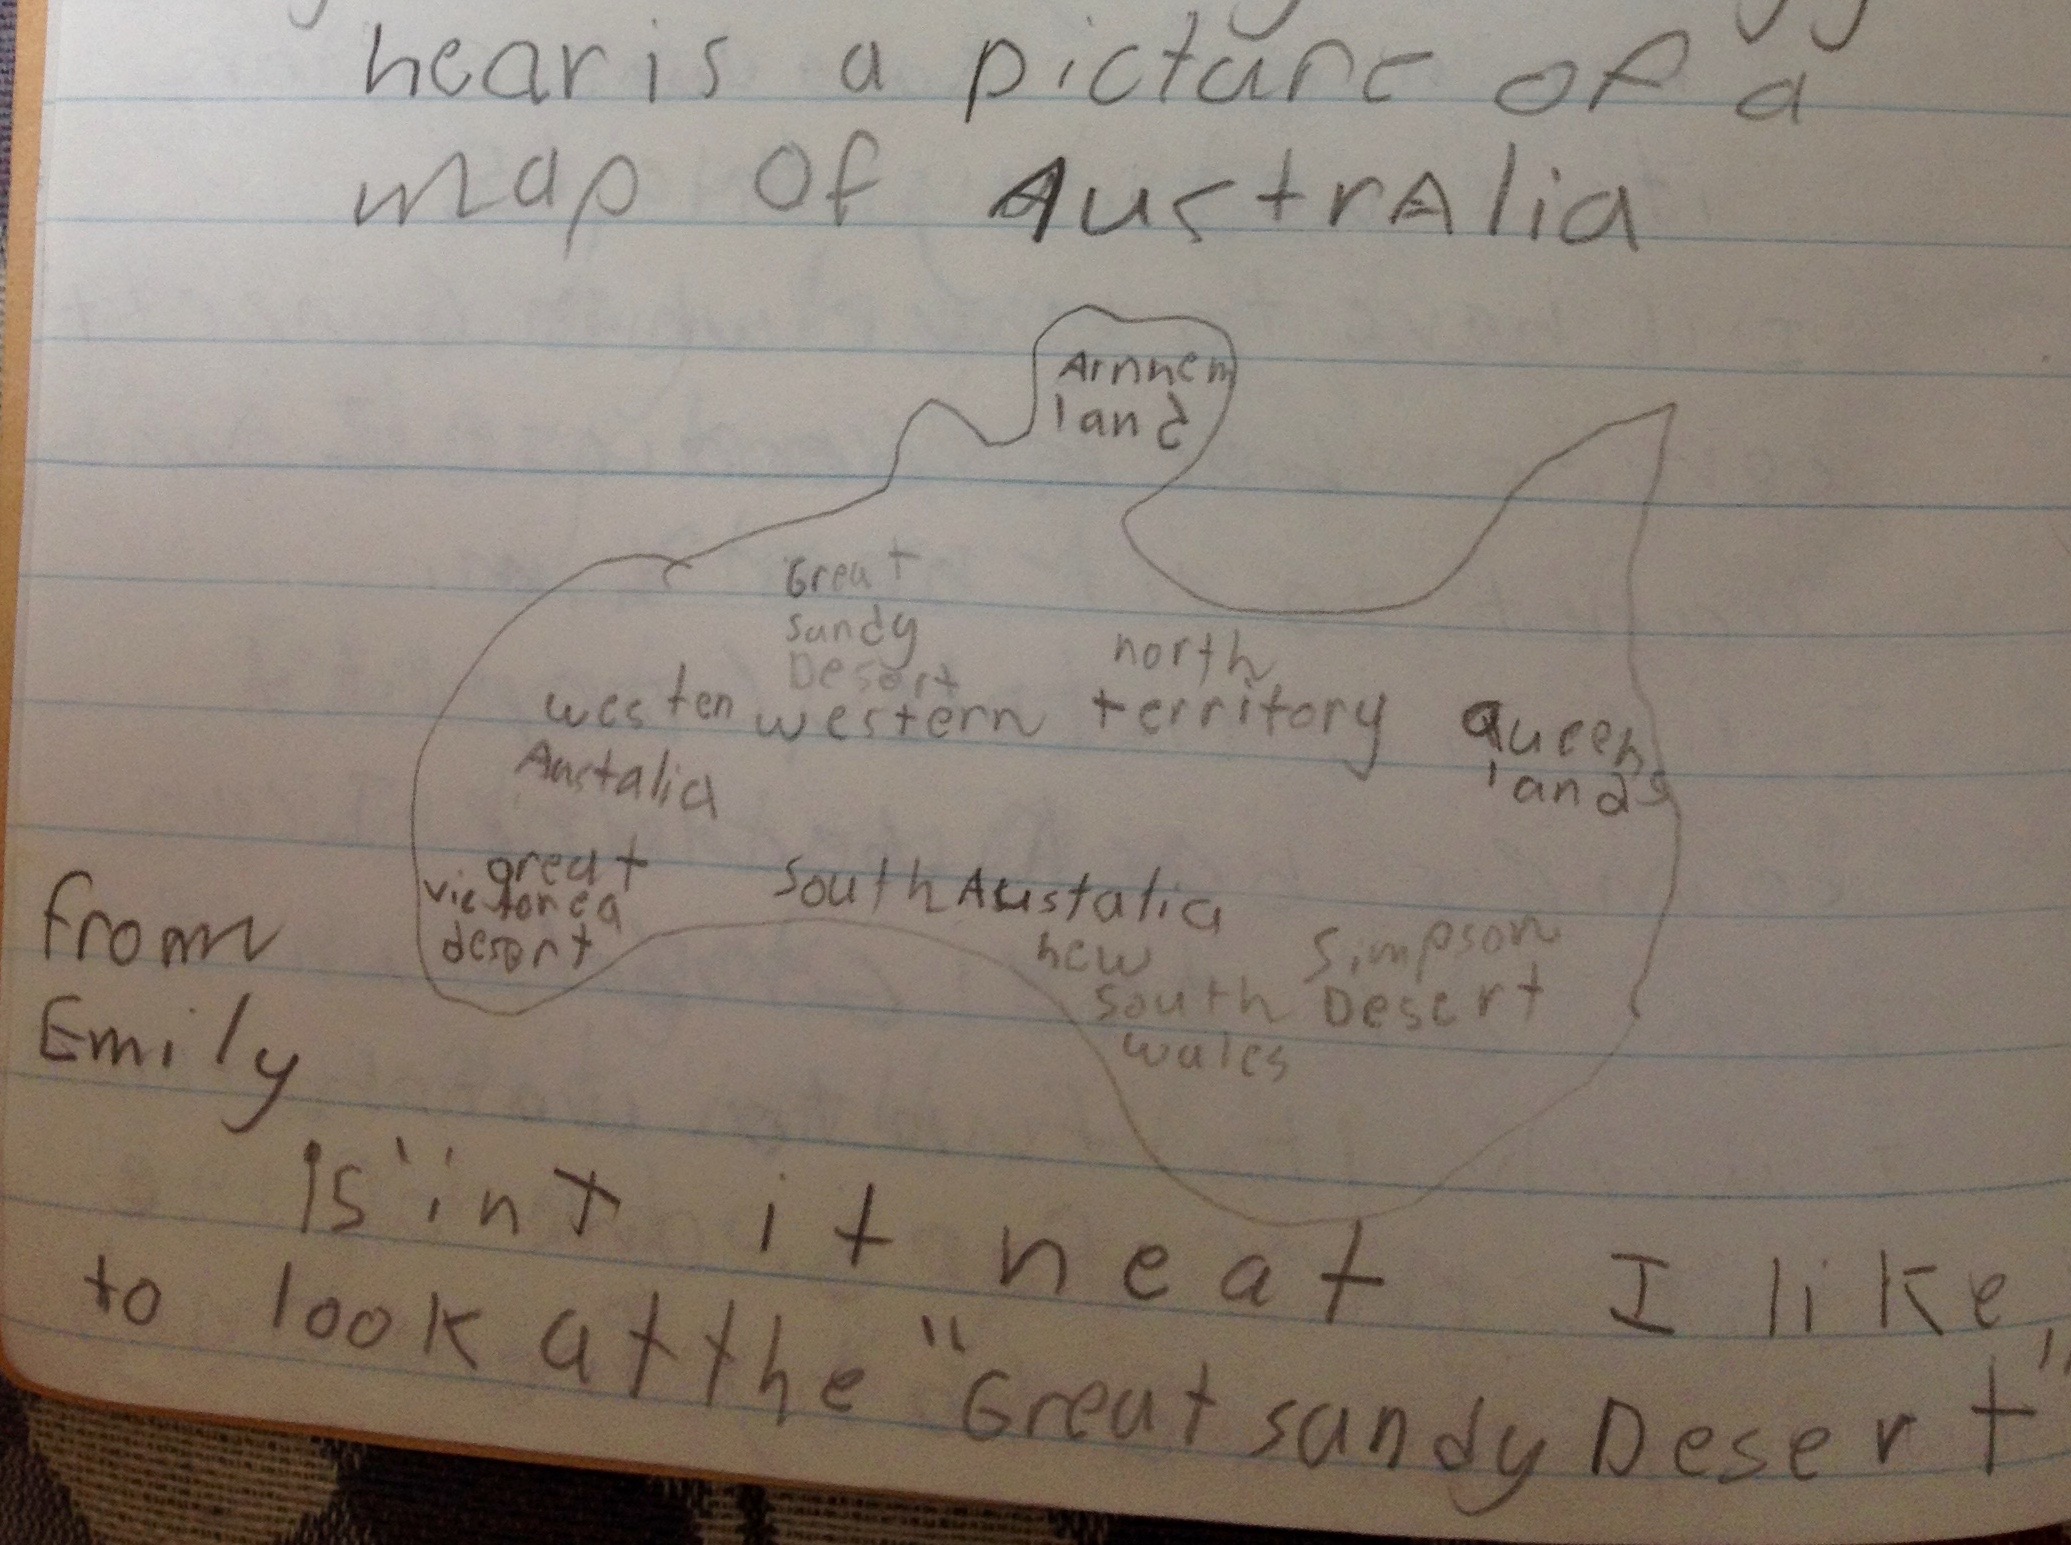 hear is a picture of a
map of AustrAlia
Arnhem
land
Great
sandy
Desert
north
westen western territory Queen
Austalia lands
great
victorea
desert
South Austalia
new
South
wales
Simpson
Desert
from
Emily
Is'int it neat I like,
to look at the "Great sandy Desert"